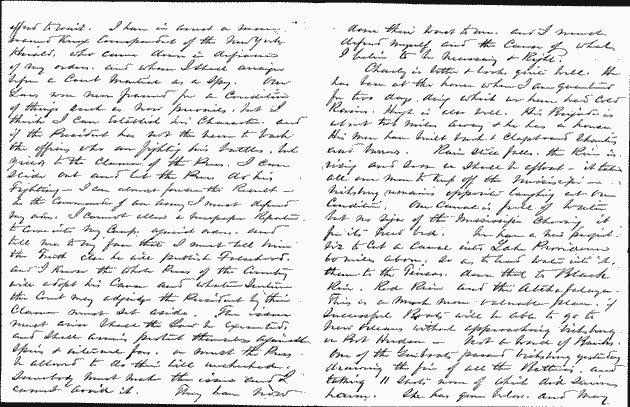 effort to resist. I have in arrest a man
named Knox Correspondent of the New York
Herald, who came down in defiance
of my orders. and whom I shall arraign
before a Court Martial as a Spy. Our
Laws were never framed for a Condition
of things such as Now prevails, but I
think I can establish his Character. and
if the President has not the nerve to back
the officers who are fighting his battles, but
yields to the Clamor of the Press. I can
Slide out and let the Press do his
Fighting - I can almost foresee the Result -
As the Commander of an Army I must defend
my orders. I cannot allow a Newspaper Reporter
to come into my Camp, against orders. and
tell me to my face that I must tell him
the Truth else he will publish Falsehood.
and I know the whole Press of the Country
will adopt his Cause and whatever
the Court may adjudge the President by their
Clamor must set aside. The issue
must arise Shall the Law be executed,
and Shall armies protect themselves against
Spies & or must the Press
be allowed to do their will unchecked.
Somebody must make the issue and I
cannot avoid it. They have now
done their worst to me. and I must
defend myself and the Cause of what
I believe to be Necessary & Right.
Charley is better & looks quite well. He
has been at this house where I am quartered
for two days, during which we have had Cold
Rains. Hugh is also well. His Brigade is
about two miles away & he has a house.
His men have built
and Rain still falls. the River is
rising and soon we shall be afloat - it takes
all our men to keep off the Mississippi -
Vicksburg remains apparently laughing at our
Condition. Our Canal is full of water
but no sign of the Mississippi Choosing it
for its New bed. We have a new project
viz to Cut a Canal into Lake Providence
60 miles above, so as to lead water into it,
thence to the Tensas. down that to Black
River. Red River and the Atchafalaya.
This is a much more valuable plan. if
Successful Boats will be able to go to
New Orleans without approaching Vicksburg
or Port Hudson - Not a word of Banks.
One of the Gunboats passed Vicksburg yesterday
drawing the fire of all the Batteries, and
taking 11 Shots none of which did Serious
harm. She has gone below. and May